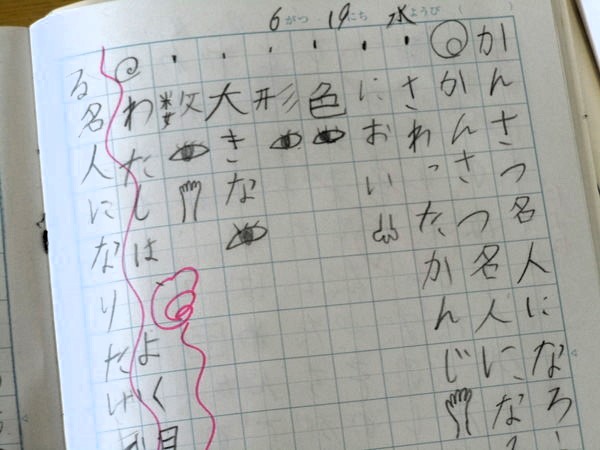 6がつ 19にち 水ようび ( )
かんさつ名人になろ
◎かんさつ名人にな
・さわったかんじ
・におい
・色
・形
・大きな
・数
わたしは、よく見
る名人になりたい